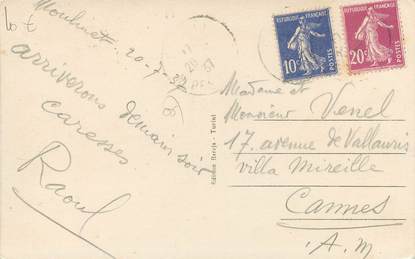 Moulinet. 20-7-37
arriverons demain soir
caresses
Raoul
REPUBLIQUE FRANÇAISE
10c
POSTES
REPUBLIQUE FRANÇAISE
20c
POSTES
Madame et
Monsieur Venel
17, avenue de Vallauris
villa Mireille
Cannes
A.M